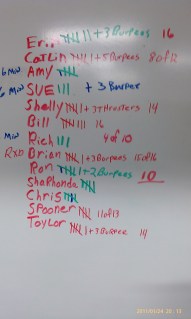 Eric 𝍸 III +3 Burpees 16
Caitlin 𝍸 I +5 Burpees 8 of 12
Amy 𝍸
SUE III + 3 Burpee
Shelly 𝍸 I +3 Thrusters 14
Bill 𝍸 III 16
Rich III 4 of 10
RxD Brian 𝍸 I +3 Burpees 15 of 16
Ron 𝍸 I +2 Burpees 10
Shaphonda 𝍸
Chris 𝍸
Spooner 𝍸 11 of 13
Taylor 𝍸 I +3 Burpee 14